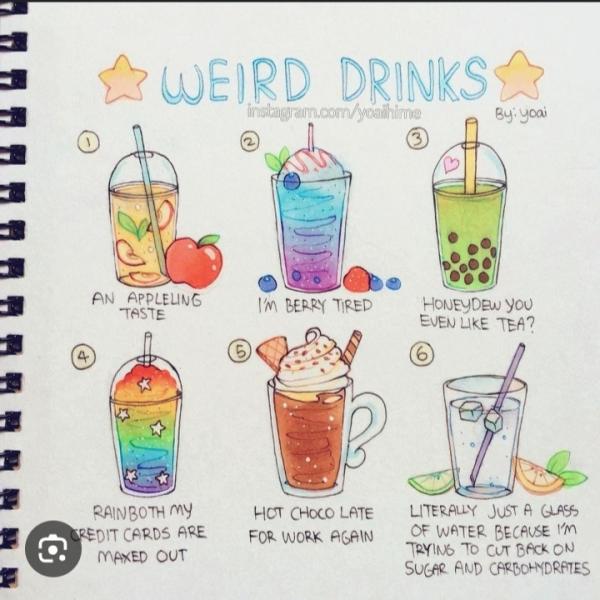 WEIRD DRINKS
instagram.com/yoaihime
By: yoai
1
2
3
AN APPLELING
TASTE
I'M BERRY TIRED
HONEYDEW YOU
EVEN LIKE TEA?
4
5
6
RAINBOTH MY
CREDIT CARDS ARE
MAXED OUT
HOT CHOCO LATE
FOR WORK AGAIN
LITERALLY JUST A GLASS
OF WATER BECAUSE I'M
TRYING TO CUT BACK ON
SUGAR AND CARBOHYDRATES